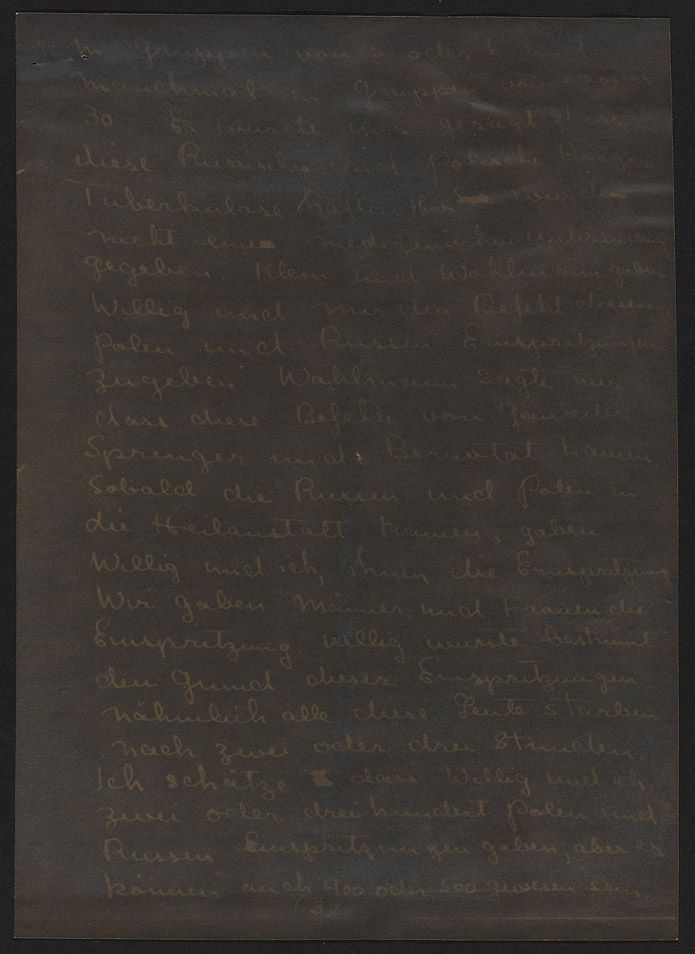 In Gruppen von 5 oder 6 und
manchmal in Gruppen von
30 Es wurde uns gesagt
diese Russische und Polische Bürger
Tuberkulose hatten wurden
nicht einen medizinischen
gegeben. Klein und Wahlmann gaben
Willig und mir den Befehl diesen
Polen und Russen Einspritzungen
zugeben Wahlmann sagte mir
dass diese Befehle vom Gauleiter
Sprenger und Bernotat kamen
Sobald die Russen und Polen in
die Heilanstalt kamen, gaben
Willig und ich, ihnen die Einspritzung
Wir gaben Männer und Frauen die
Einspritzung willig wusste bestimmt
den Grund dieser Einspritzungen
nähmlich alle diese Leute starben
nach zwei oder drei Stunden
Ich schätze dass Willig und ich
zwei oder dreihundert Polen und
Russen Einspritzungen gaben, aber es
können auch 400 oder 500 gewesen sein
(3)